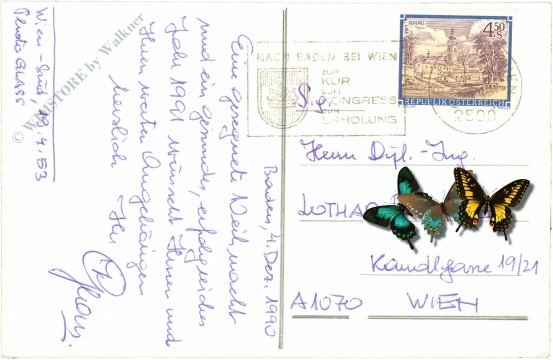 Wien-Süd, 19.4.53
© WIMSTORE by Walkner
Baden, 4. Dez. 1990
Eine gesegnete Weihnacht
und ein gesundes, erfolgreiches
Jahr 1991 wünscht Ihnen und
Ihren werten Angehörigen
herzlich Ihr
NACH BADEN BEI WIEN
ZUR
KUR
ZUM
KONGRESS
ZUR
ERHOLUNG
2500
4.50
REPUBLIK ÖSTERREICH
S.g.
Herrn Dipl.-Ing.
LOTHAR
Kandlgasse 19/21
A1070 WIEN